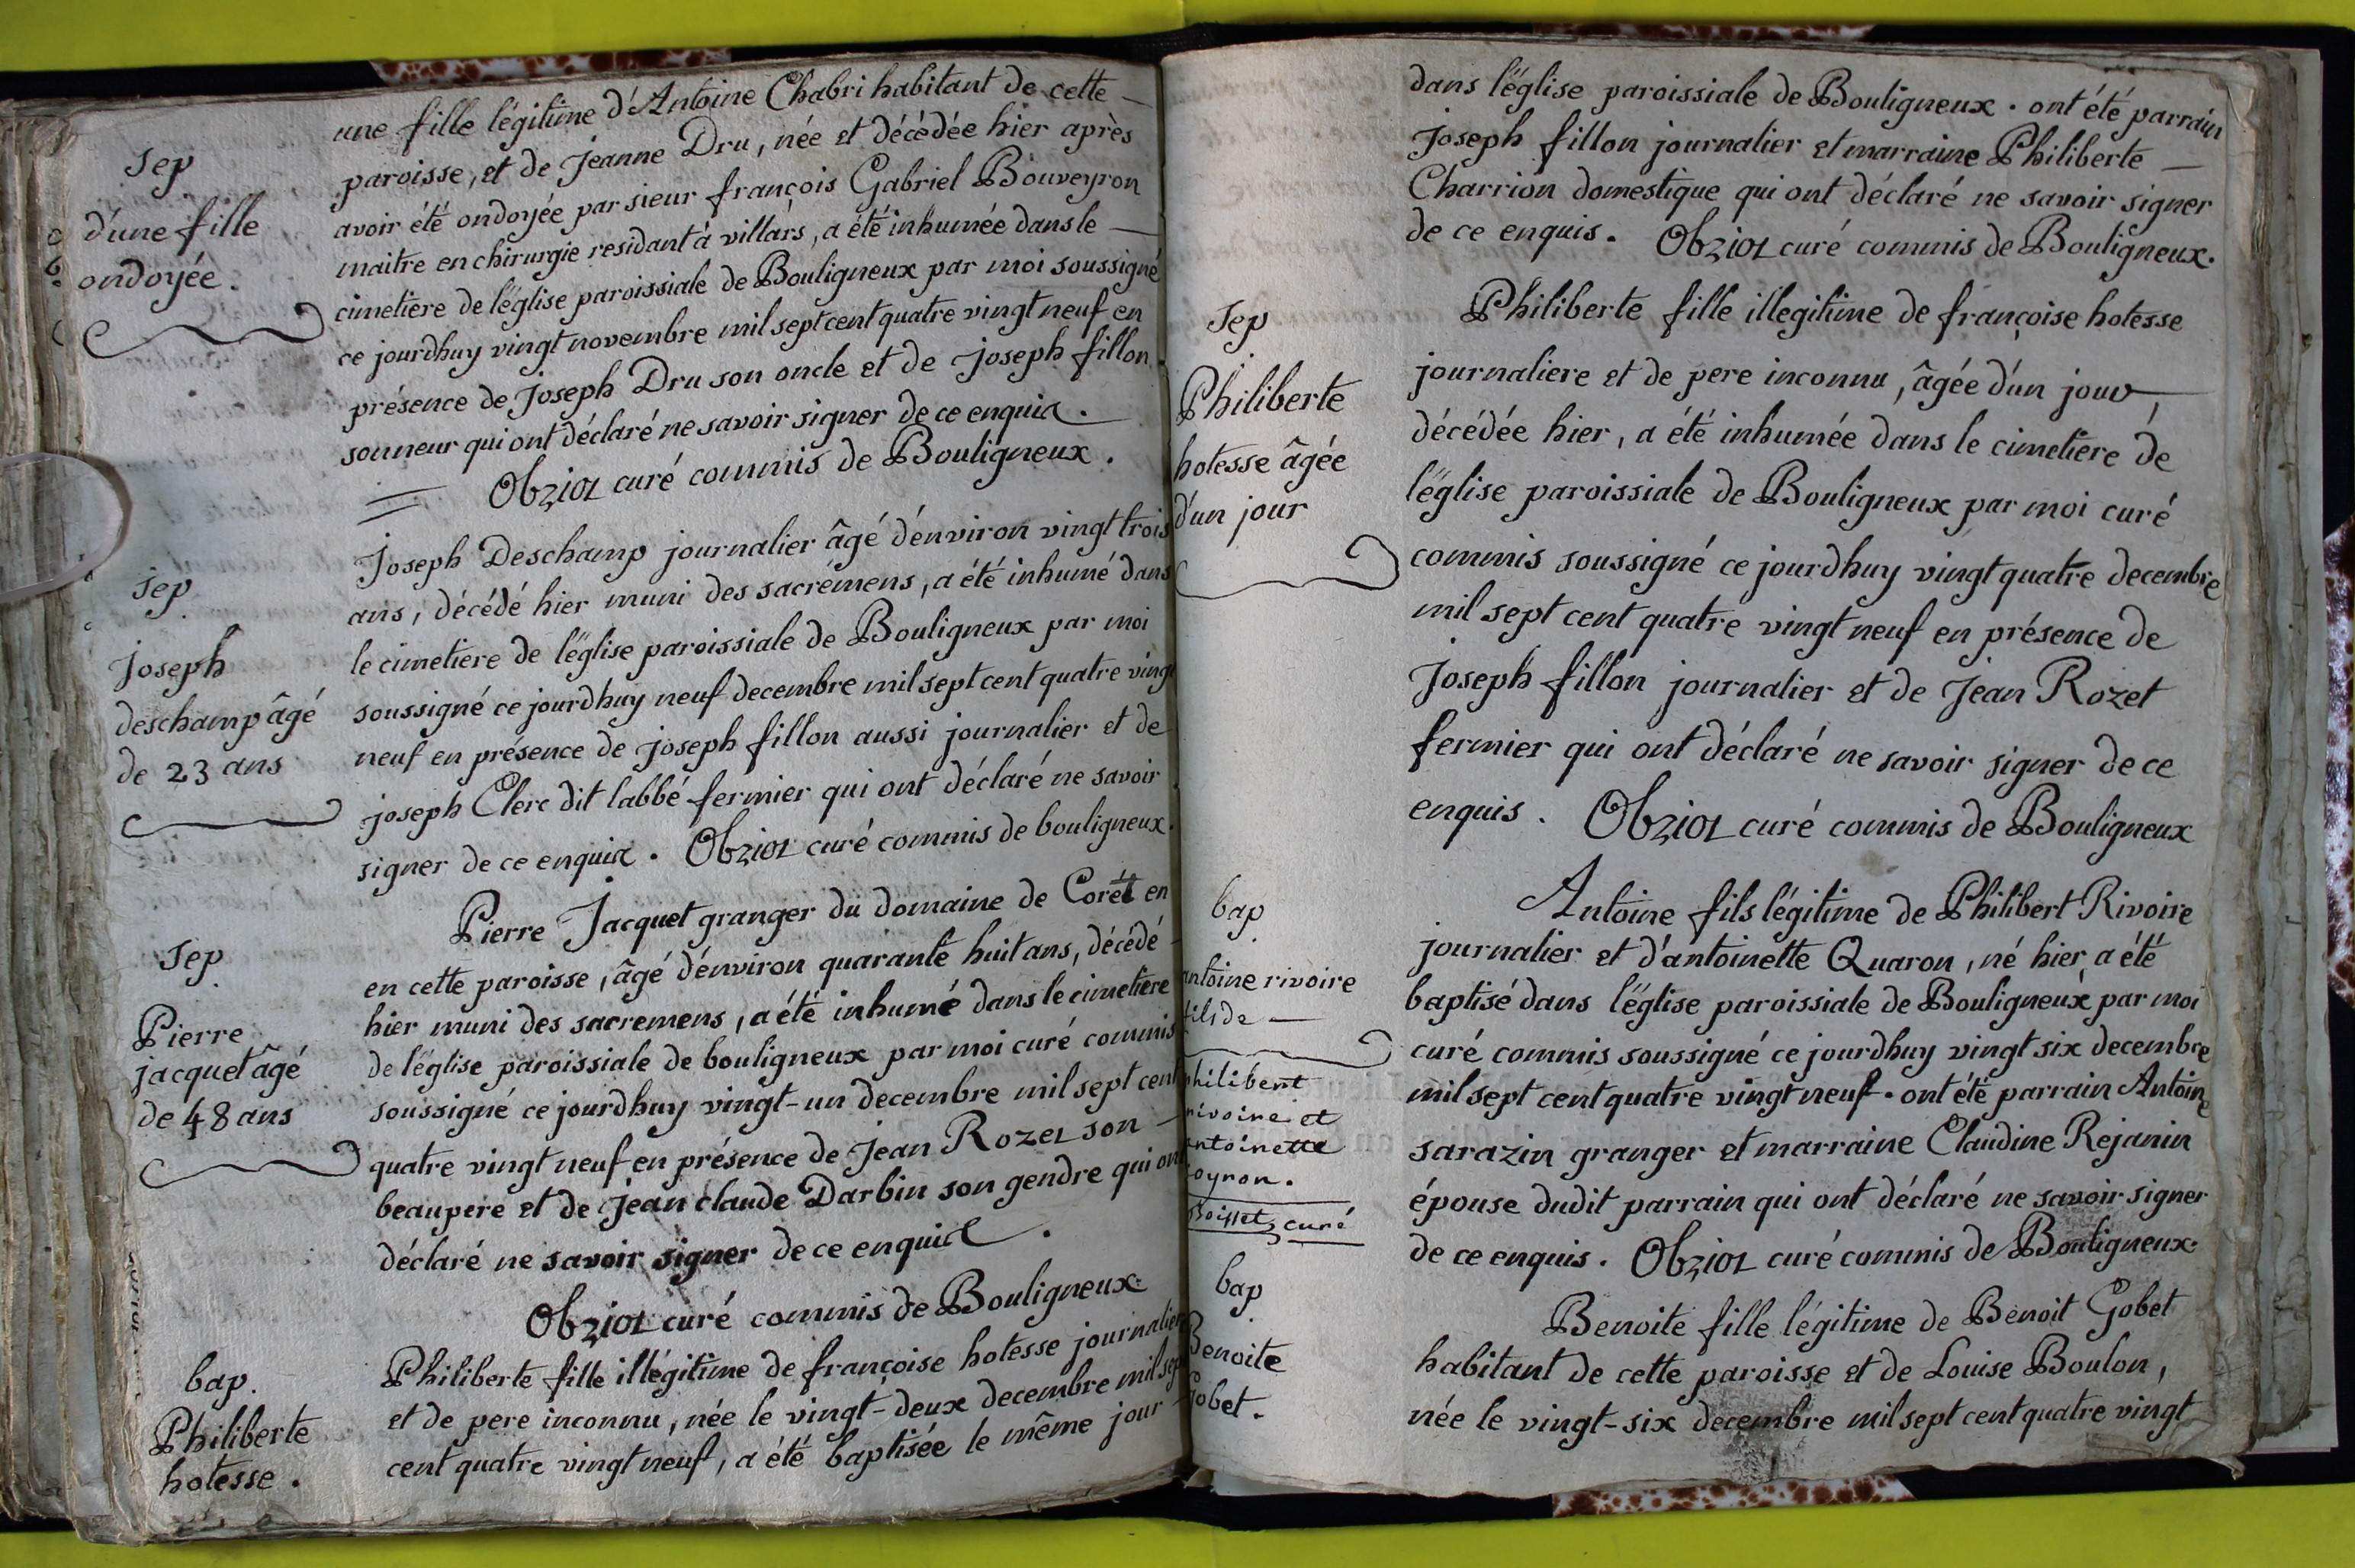 une fille légitime d'Antoine Chabri habitant de cette
paroisse, et de Jeanne Dru, née et décédée hier après
avoir été ondoyée par sieur françois Gabriel Bouveyron
maitre en chirurgie residant à villars, a été inhumée dans le
cimetiere de l'église paroissiale de Bouligneux par moi soussigné
ce jourdhuy vingt novembre mil sept cent quatre vingt neuf en
présence de Joseph Dru son oncle et de joseph fillon
sonneur qui ont déclaré ne savoir signer de ce enquis.
Obriot curé commis de Bouligneux.
Sep
d'une fille
ondoyée.
Joseph Deschamp journalier âgé d'environ vingt trois
ans, décédé hier muni des sacrémens, a été inhumé dans
le cimetiere de l'église paroissiale de Bouligneux par moi
soussigné ce jourdhuy neuf decembre mil sept cent quatre vingt
neuf en présence de joseph fillon aussi journalier et de
joseph Clerc dit labbé fermier qui ont déclaré ne savoir
signer de ce enquis. Obriot curé commis de bouligneux.
Sep
Joseph
deschamp âgé
de 23 ans
Pierre Jacquet granger du domaine de Corét en
en cette paroisse, âgé d'environ quarante huit ans, décédé
hier muni des sacremens, a été inhumé dans le cimetiere
de l'église paroissiale de bouligneux par moi curé commis
soussigné ce jourdhuy vingt-un decembre mil sept cent
quatre vingt neuf en présence de Jean Rozet son
beaupere et de Jean claude Darbin son gendre qui ont
déclaré ne savoir signer de ce enquis.
Obriot curé commis de Bouligneux.
Sep
Pierre
jacquet âgé
de 48 ans
Philiberte fille illégitime de françoise hotesse journalier
et de pere inconnu, née le vingt-deux decembre mil sept
cent quatre vingt neuf, a été baptisée le même jour
bap.
Philiberte
hotesse.
dans l'église paroissiale de Bouligneux. ont été parrain
Joseph fillon journalier et marraine Philiberte
Charrion domestique qui ont déclaré ne savoir signer
de ce enquis. Obriot curé commis de Bouligneux.
Philiberte fille illegitime de françoise hotesse
journaliere et de pere inconnu, âgée d'un jour,
décédée hier, a été inhumée dans le cimetiere de
l'église paroissiale de Bouligneux par moi curé
commis soussigné ce jourdhuy vingt quatre decembre
mil sept cent quatre vingt neuf en présence de
Joseph fillon journalier et de Jean Rozet
fermier qui ont déclaré ne savoir signer de ce
enquis. Obriot curé commis de Bouligneux
Sep
Philiberte
hotesse âgée
d'un jour
Antoine fils légitime de Philibert Rivoire
journalier et d'antoinette Quaron, né hier, a été
baptisé dans l'église paroissiale de Bouligneux par moi
curé commis soussigné ce jourdhuy vingt six decembre
mil sept cent quatre vingt neuf. ont été parrain Antoine
sarazin granger et marraine Claudine Rejanin
épouse dudit parrain qui ont déclaré ne savoir signer
de ce enquis. Obriot curé commis de Bouligneux.
bap
antoine rivoire
fils de
philibert
rivoire et
antoinette
curé
Benoite fille légitime de Benoit Gobet
habitant de cette paroisse et de Louise Boulon,
née le vingt-six decembre mil sept cent quatre vingt
bap
Benoite
Gobet.